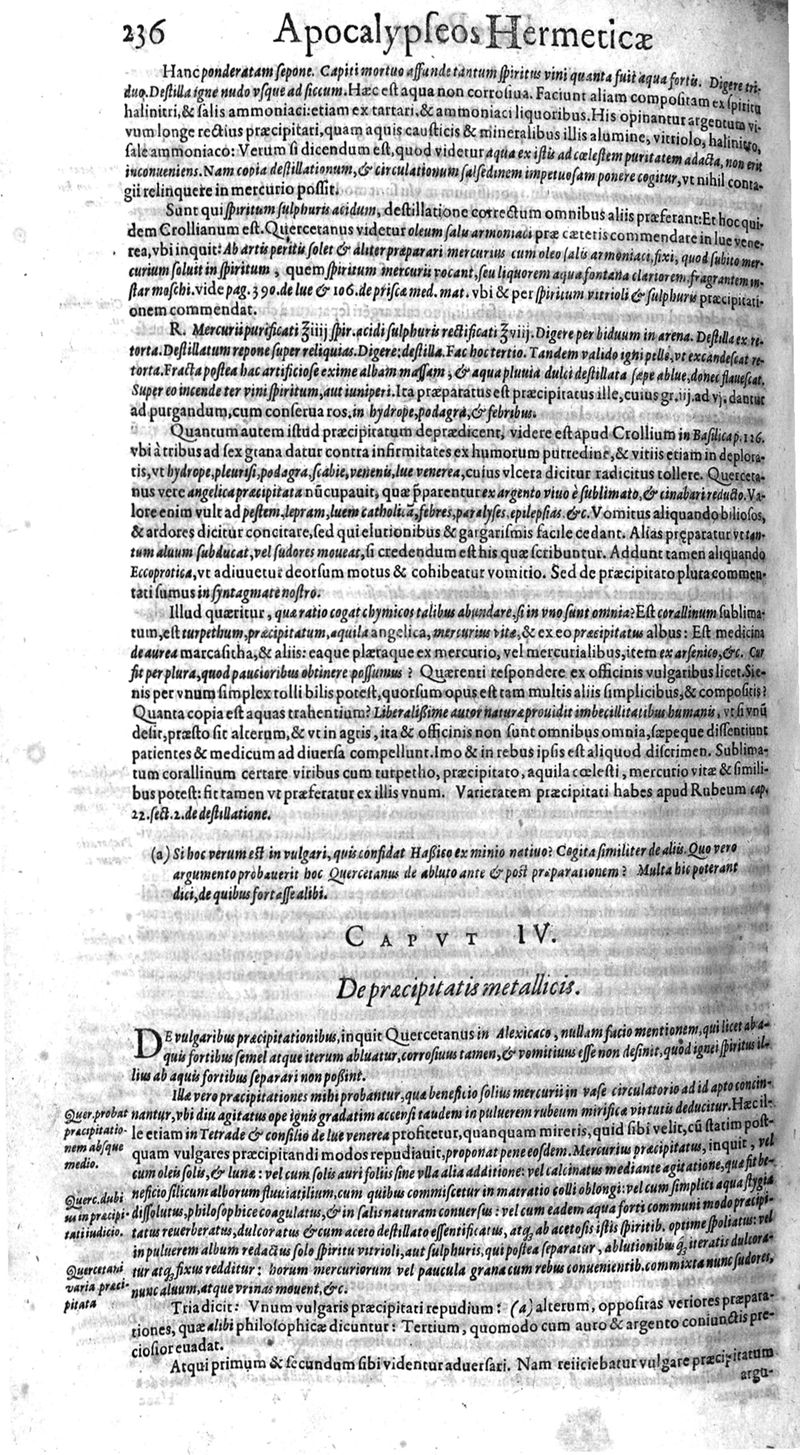 236 Apocalypſeos Hermeticæ
Hanc ponderatam ſepone. Capiti mortuo affunde tantum ſpiritus vini quanta fuit aqua fortis. Digere tri-
duo. Deſtilla igne nudo vſque ad ſiccum. Hæc eſt aqua non corroſiua. Faciunt aliam compoſitam ex ſpiritu
halinitri, & ſalis ammoniaci: etiam ex tartari, & ammoniaci liquoribus. His opinantur argentum vi-
vum longe rectius præcipitari, quam aquis cauſticis & mineralibus illis alumine, vitriolo, halinitro,
ſale ammoniaco: Verum ſi dicendum eſt, quod videtur aqua ex iſtis ad cœleſtem puritatem adacta, non erit
inconueniens. Nam copia deſtillationum, & circulationum ſalſedinem impetuoſam ponere cogitur, vt nihil conta-
gii relinquere in mercurio poſſit.
Sunt qui ſpiritum ſulphuris acidum, deſtillatione correctum omnibus aliis præferant: Et hoc qui-
dem Crollianum eſt. Quercetanus videtur oleum ſalu armoniaci præ cæteris commendare in lue vene-
rea, vbi inquit: Ab artis peritis ſolet & aliter præparari mercurius cum oleo ſalis armoniaci, fixi, quod ſubito mer-
curium ſoluit in ſpiritum, quem ſpiritum mercurii vocant, ſeu liquorem aqua fontana clariorem, fragrantem in-
ſtar moſchi. vide pag. 390. de lue & 106. de priſca med. mat. vbi & per ſpiritum vitrioli & ſulphuris præcipitati-
onem commendat.
R. Mercurii purificati ℥iiij ſpir. acidi ſulphuris rectificati ℥viij. Digere per biduum in arena. Deſtilla ex re-
torta. Deſtillatum repone ſuper reliquias. Digere: deſtilla. Fac hoc tertio. Tandem valido igni pelle, vt excandeſcat re-
torta. Fracta poſtea hac artificioſe exime albam maſſam, & aqua pluuia dulci deſtillata ſæpe ablue, donec flaueſcat.
Super eo incende ter vini ſpiritum, aut iuniperi. Ita præparatus eſt præcipitatus ille, cuius gr. iij. ad vj. dantur
ad purgandum, cum conſerua ros. in hydrope, podagra, & febribus.
Quantum autem iſtud præcipitatum deprædicent, videre eſt apud Crollium in Baſilica p. 126.
vbi à tribus ad ſex grana datur contra infirmitates ex humorum putredine, & vitiis etiam in deplora-
tis, vt hydrope, pleuriſi, podagra, ſcabie, venenis, lue venerea, cuius vlcera dicitur radicitus tollere. Querceta-
nus vere angelica præcipitata nūcupauit, quæ p̄parentur ex argento viuo è ſublimato, & cinabari reducto. Va-
lore enim vult ad peſtem, lepram, luem catholicā, febres, paralyſes, epilepſias, &c. Vomitus aliquando bilioſos,
& ardores dicitur concitare, ſed qui elutionibus & gargariſmis facile cedant. Alias præparatur vt tan-
tum aluum ſubducat, vel ſudores moueat, ſi credendum eſt his quæ ſcribuntur. Addunt tamen aliquando
Eccoprotica, vt adiuuetur deorſum motus & cohibeatur vomitio. Sed de præcipitato plura commen-
tati ſumus in ſyntagmate noſtro.
Illud quæritur, quæ ratio cogat chymicos talibus abundare, ſi in vno ſunt omnia? Eſt corallinum ſublima-
tum, eſt turpethum, præcipitatum, aquila angelica, mercurius vitæ, & ex eo præcipitatus albus: Eſt medicina
de aurea marcaſitha, & aliis: eaque plæraque ex mercurio, vel mercurialibus, item ex arſenico, &c. Cur
fit per plura, quod paucioribus obtinere poſſumus? Quærenti reſpondere ex officinis vulgaribus licet. Sie-
nis per vnum ſimplex tolli bilis poteſt, quorſum opus eſt tam multis aliis ſimplicibus, & compoſitis?
Quanta copia eſt aquas trahentium? Liberaliſſime autor natura prouidit imbecillitatibus humanis, vt ſi vnū
deſit, præſto ſit alterum, & vt in agris, ita & officinis non ſunt omnibus omnia, ſæpeque diſſentiunt
patientes & medicum ad diuerſa compellunt. Imo & in rebus ipſis eſt aliquod diſcrimen. Sublima-
tum corallinum certare viribus cum turpetho, præcipitato, aquila cœleſti, mercurio vitæ & ſimili-
bus poteſt: fit tamen vt præferatur ex illis vnum. Varietatem præcipitati habes apud Rubeum cap.
22. ſect. 2. de deſtillatione.
(a) Si hoc verum eſt in vulgari, quis confidat Haſſico ex minio natiuo? Cogita ſimiliter de aliis. Quo vero
argumento probauerit hoc Quercetanus de abluto ante & poſt præparationem? Multa hic poterant
dici, de quibus fortaſſe alibi.
CAPVT IV.
De præcipitatis metallicis.
DE vulgaribus præcipitationibus, inquit Quercetanus in Alexicaco, nullam facio mentionem, qui licet ab a-
quis fortibus ſemel atque iterum abluatur, corroſiuus tamen, & vomitiuus eſſe non deſinit, quòd ignei ſpiritus il-
lius ab aquis fortibus ſeparari non poſſint.
Illæ vero præcipitationes mihi probantur, quæ beneficio ſolius mercurii in vaſe circulatorio ad id apto concin-
nantur, vbi diu agitatus ope ignis gradatim accenſi tandem in puluerem rubeum mirificæ virtutis deducitur. Hæc il-
le etiam in Tetrade & conſilio de lue venerea profitetur, quanquam mireris, quid ſibi velit, cū ſtatim poſt-
quam vulgares præcipitandi modos repudiauit, proponat pene eoſdem. Mercurius præcipitatus, inquit, vel
cum oleis ſolis, & lunæ: vel cum ſolis auri foliis ſine vlla alia additione: vel calcinatus mediante agitatione, quæ fit be-
neficio ſilicum alborum fluuiatilium, cum quibus commiſcetur in matratio colli oblongi: vel cum ſimplici aqua ſtygia
diſſolutus, philoſophice coagulatus, & in ſalis naturam conuerſus: vel cum eadem aqua forti communi modo præcipi-
tatus reuerberatus, dulcoratus & cum aceto deſtillato eſſentificatus, atq; ab acetoſis iſtis ſpiritib. optime ſpoliatus: vel
in puluerem album redactus ſolo ſpiritu vitrioli, aut ſulphuris, qui poſtea ſeparatur, ablutionibus q; iteratis dulcora-
tur atq; fixus redditur: horum mercuriorum vel paucula grana cum rebus conuenientib. commixta nunc ſudores,
nunc aluum, atque vrinas mouent, &c.
Tria dicit: Vnum vulgaris præcipitati repudium: (a) alterum, oppoſitas veriores præpara-
tiones, quæ alibi philoſophicæ dicuntur: Tertium, quomodo cum auro & argento coniunctis pre-
cioſior euadat.
Atqui primum & ſecundum ſibi videntur aduerſari. Nam reiiciebatur vulgare præcipitatum
argu-
Quer. probat
præcipitatio-
nem abſque
medio.
Querc. dubi
us in præcipi-
tati iudicio.
Quercetani
varia præci-
pitata